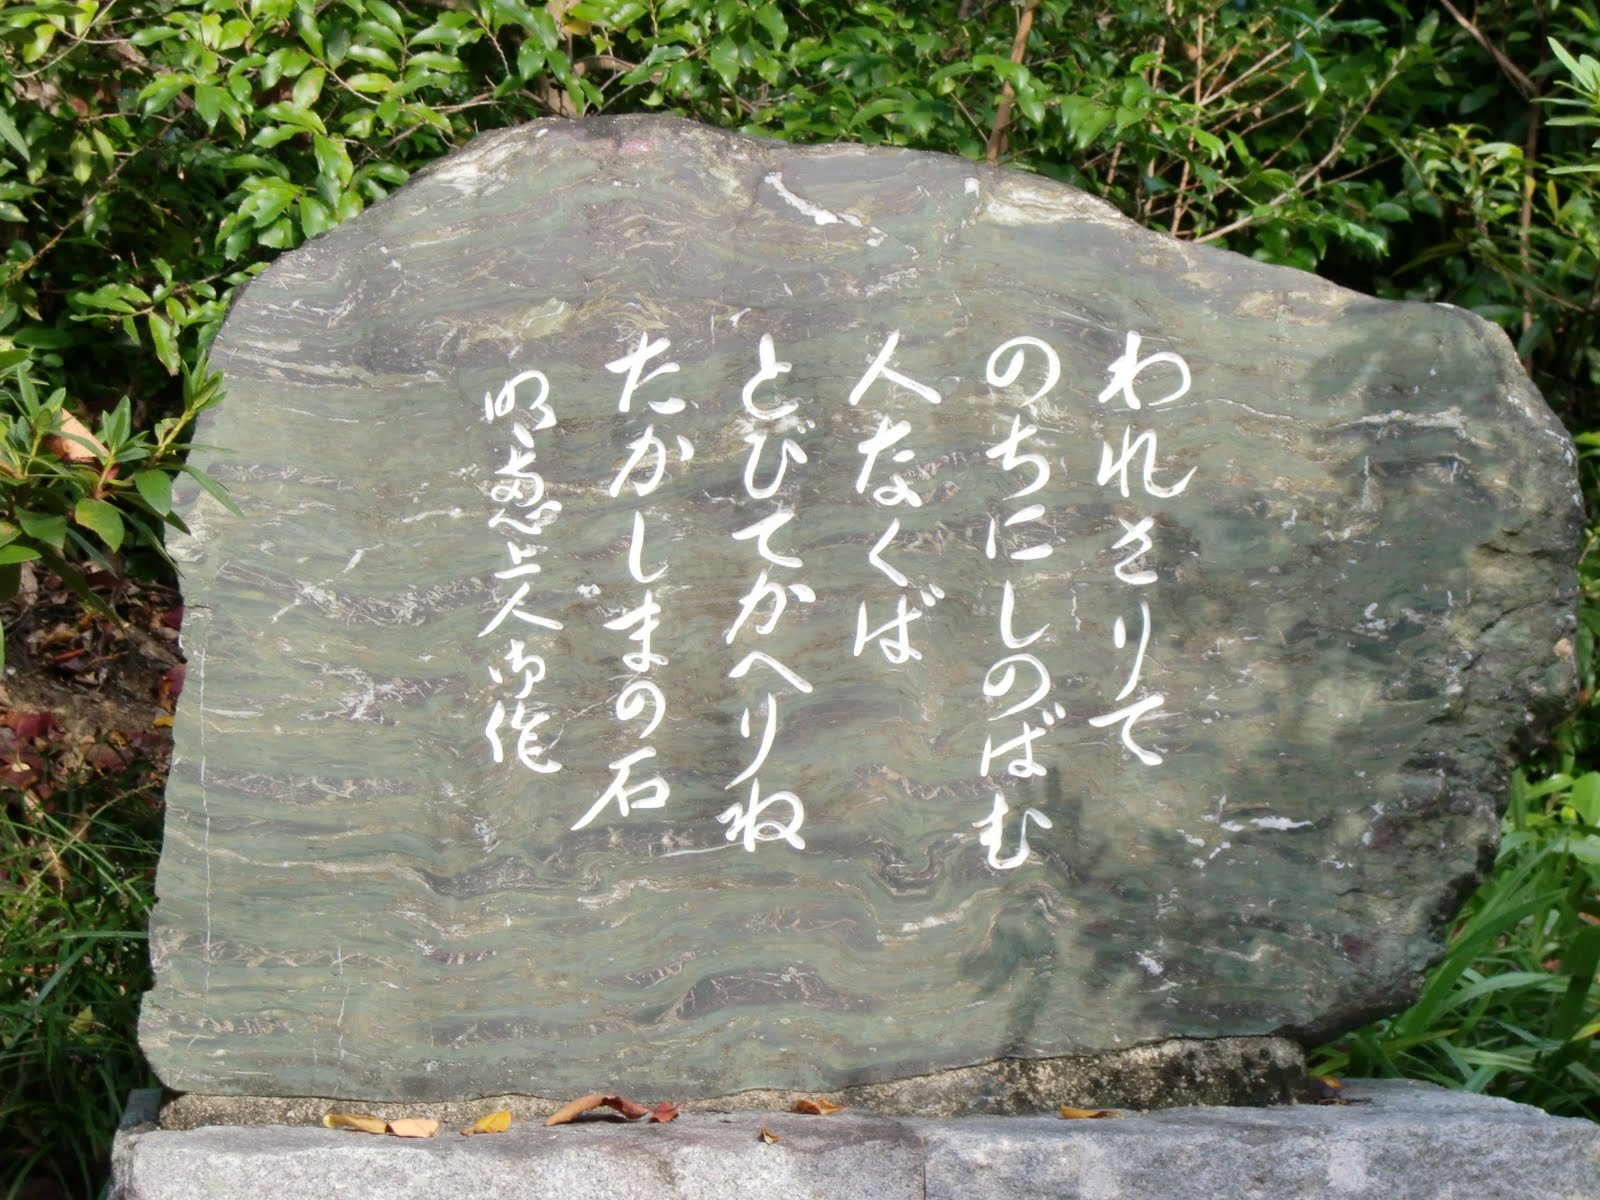 われさりて
のちにしのばむ
人なくば
とびてかへりね
たかしまの石
明恵上人御作